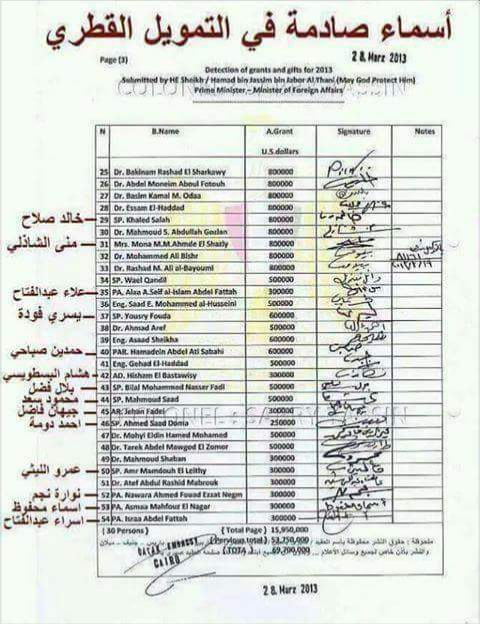 أسماء صادمة في التمويل القطري
28. Marz 2013
Page (3)
Detection of grants and gifts for 2013
Submitted by HE Sheikh / Hamad bin Jassim bin Jabor Al Thani (May God Protect Him)
Prime Minister – Minister of Foreign Affairs
N B.Name A.Grant U.S.dollars Signature Notes
25 Dr. Bakinam Rashad El Sharkawy 800000
26 Dr. Abdel Moneim Aboul Fotouh 800000
27 Dr. Basim Kamal M. Odaa 800000
28 Dr. Essam El-Haddad 800000
خالد صلاح 29 SP. Khaled Salah 800000
30 Dr. Mahmoud S. Abdullah Gozlan 800000
منى الشاذلي 31 Mrs. Mona M.M.Ahmde El Shazly 800000
32 Dr. Mohammed Ali Bishr 800000
33 Dr. Rashad M. Ali al-Bayoumi 800000
34 SP. Wael Qandil 500000
علاء عبدالفتاح 35 PA. Alaa A.Seif al-Islam Abdel Fattah 300000
36 Eng. Saad E. Mohammed al-Husseini 500000
يسري فودة 37 SP. Yousry Fouda 600000
38 Dr. Ahmad Aref 500000
39 Eng. Asaad Sheikha 600000
حمدين صباحي 40 PAR. Hamadein Abdel Ati Sabahi 600000
41 Eng. Gehad El-Haddad 500000
هشام البسطويسي 42 AD. Hisham El Bastawisy 300000
بلال فضل 43 SP. Bilal Mohammed Nasser Fadl 500000
محمود سعد 44 SP. Mahmoud Saad 500000
جيهان فاضل 45 AR. Jehan Fadel 300000
احمد دومة 46 SP. Ahmed Saad Domia 250000
47 Dr. Mohy Eldin Hamed Mohamed 500000
48 Dr. Tarek Abdel Mawgod El Zomor 500000
49 Dr. Mahmoud Shaban 300000
عمرو الليثي 50 SP. Amr Mamdouh El Leithy 300000
51 Dr. Atef Abdul Rashid Mabrouk 300000
نوارة نجم 52 PA. Nawara Ahmed Fouad Ezzat Negm 300000
اسماء محفوظ 53 PA. Asmaa Mahfouz El Nagar 300000
اسراء عبدالفتاح 54 PA. Israa Abdel Fattah 300000
(30 Persons) (Total Page) 15,950,000
(Pervious total) 53,750,000
(TOTAL) 69,700,000
QATAR EMBASSY
CAIRO
28. Marz 2013